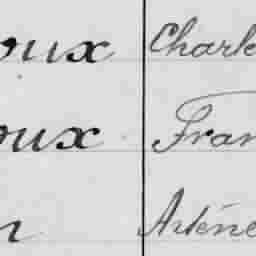 oux Charle
oux Fran
n Arténe